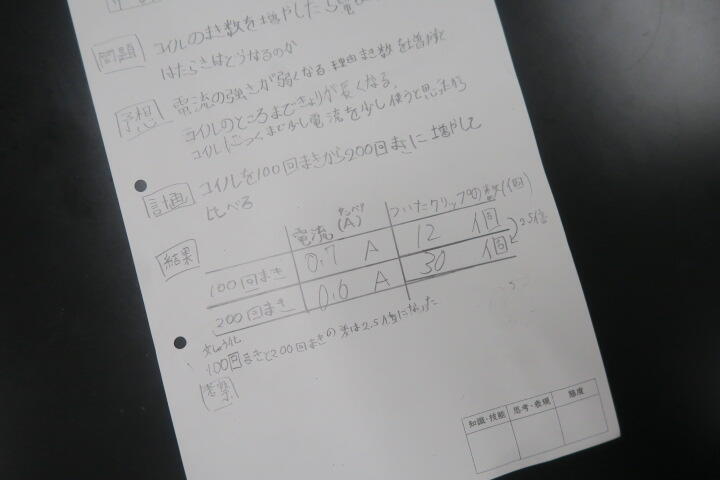 問題 コイルのまき数を増やしたら電
はたらきはどうなるのか
予想 電流の強さが弱くなる。理由 まき数を増やすと
コイルのところまできょりが長くなる。
コイルにつくまで少し電流を少し使うと思ったから
計画 コイルを100回まきから200回まきに増やして
比べる
結果 電流(A) アンペア ついたクリップの数(個)
100回まき 0.7 A 12 個
200回まき 0.6 A 30 個
2.5倍
文しょう化
100回まきと200回まきの差は2.5倍になった
考察
知識・技能 思考・表現 態度